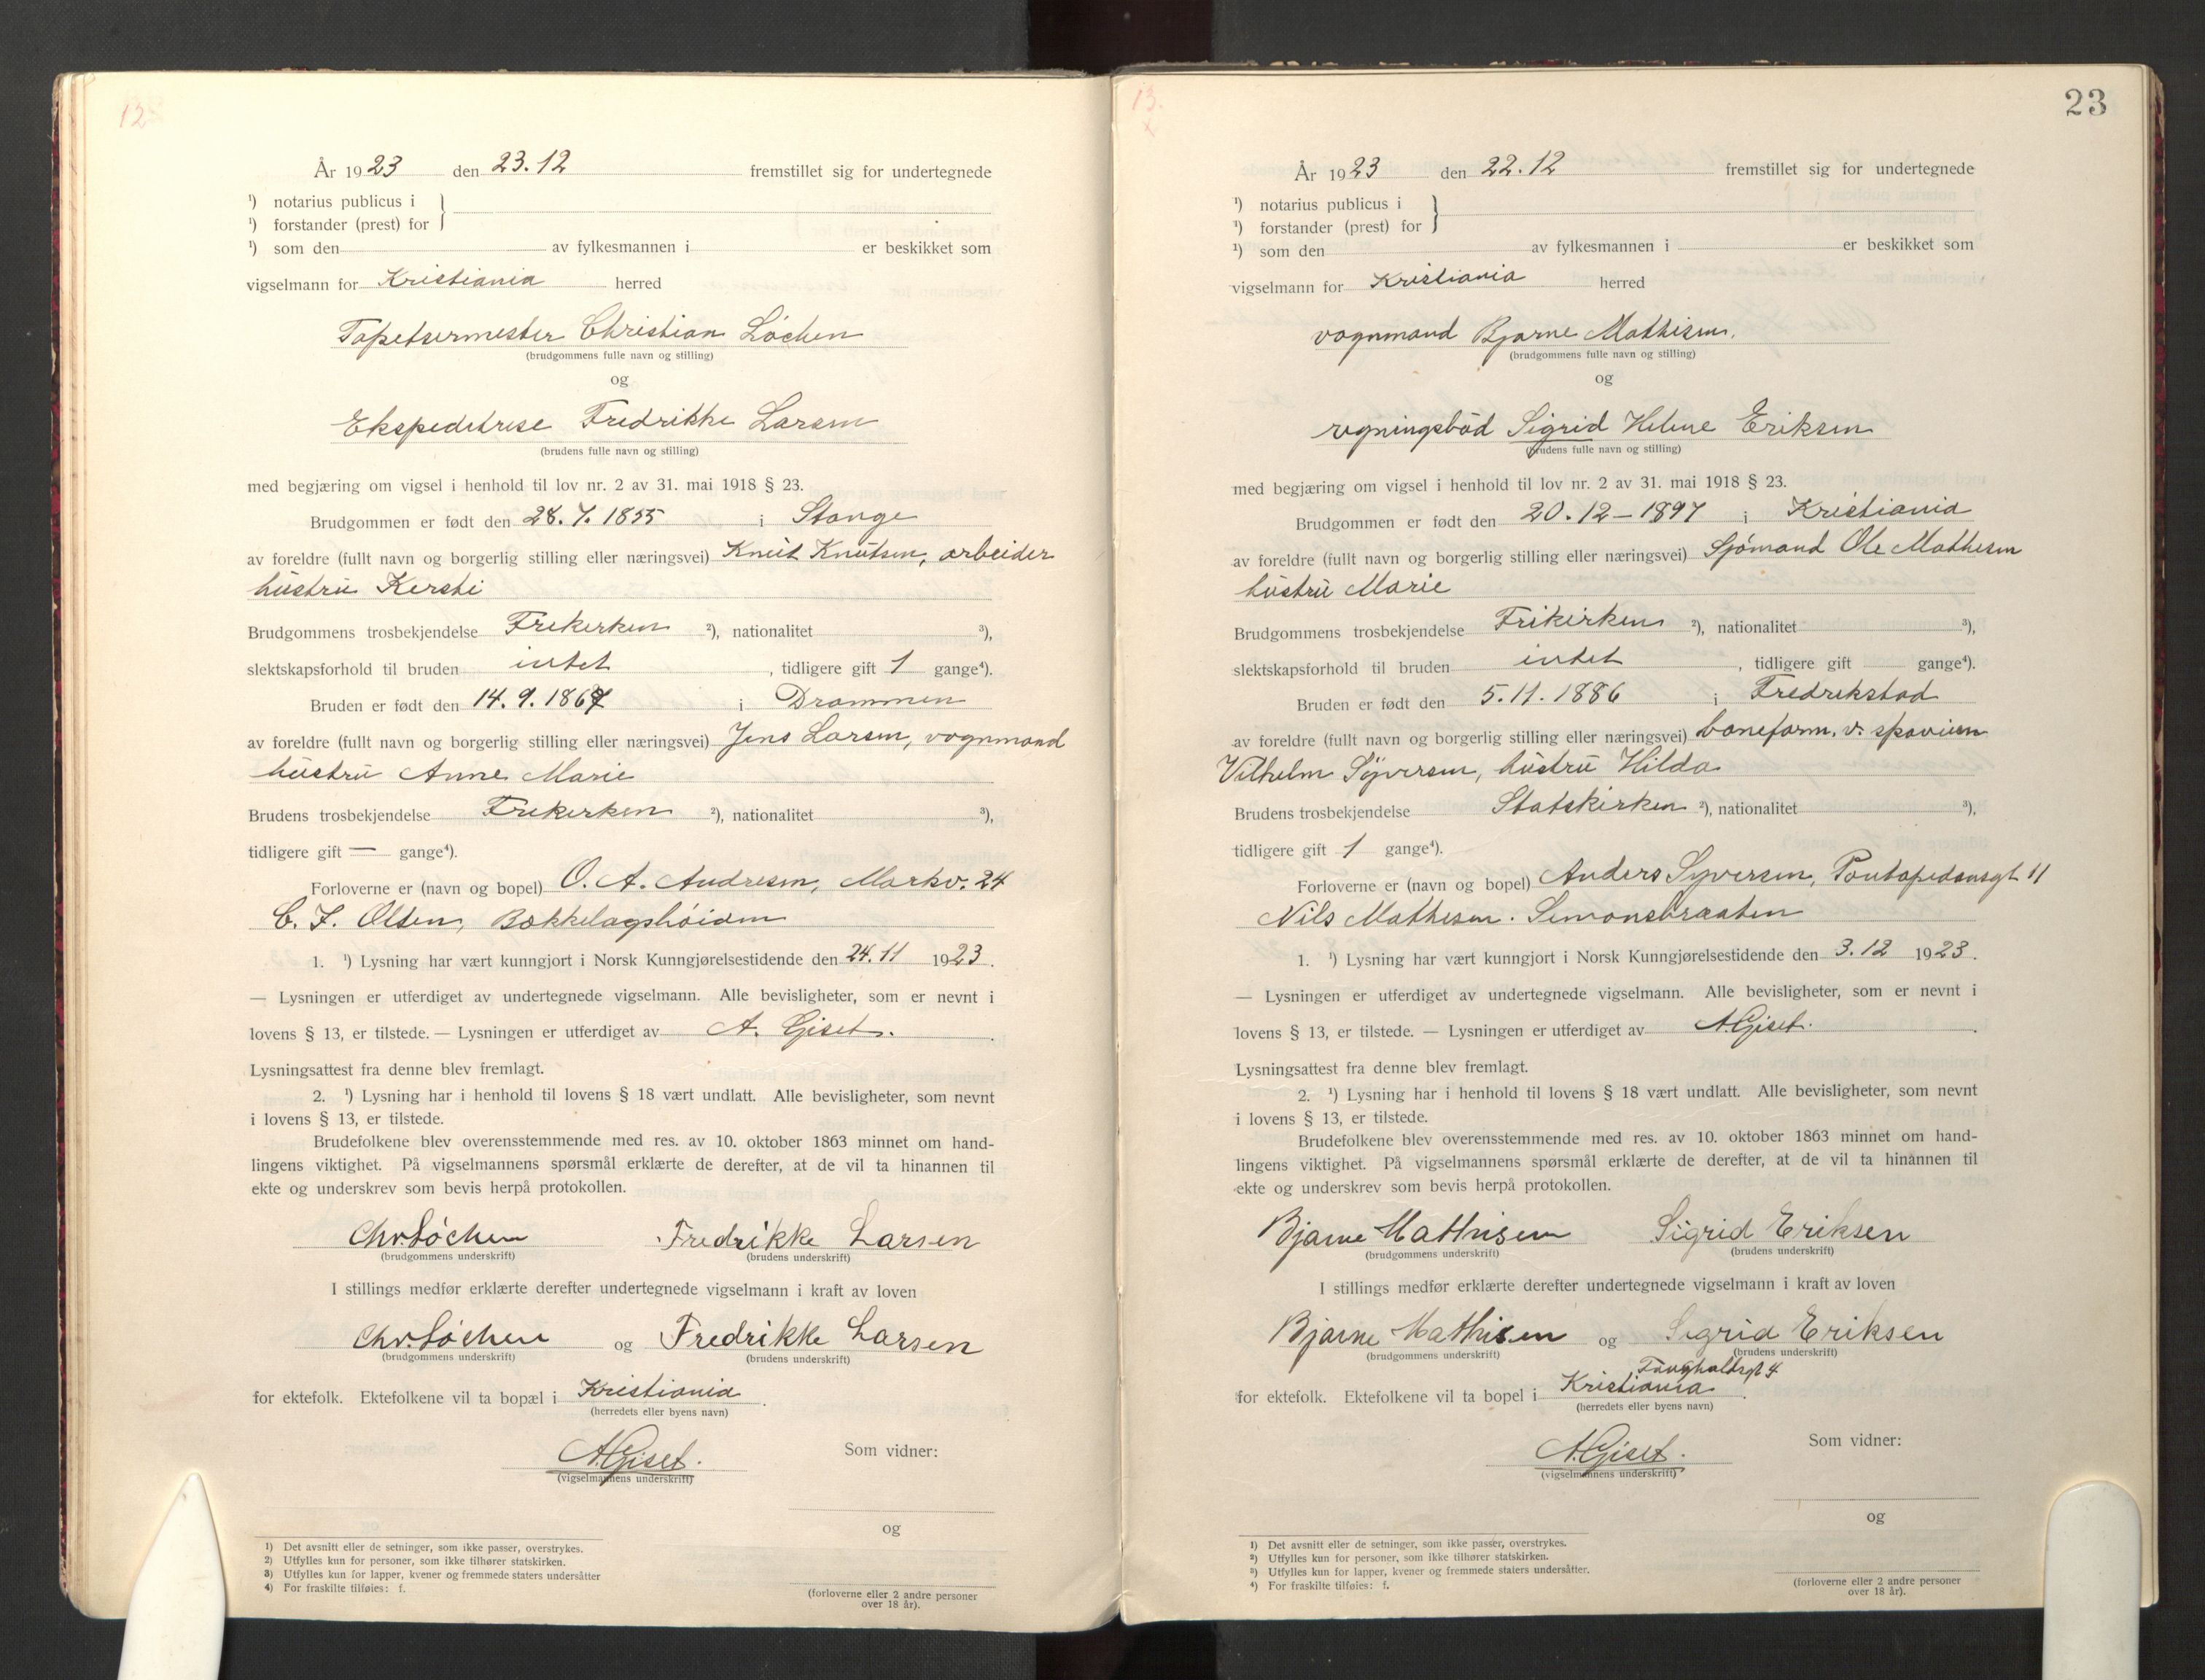 12
År 1923 den 23.12 fremstillet sig for undertegnede
¹) notarius publicus i
¹) forstander (prest) for
¹) som den av fylkesmannen i er beskikket som
vigselmann for Kristiania herred
Tapetsermester Christian Löchen
(brudgommens fulle navn og stilling)
og
Ekspeditrise Fredrikke Larsen
(brudens fulle navn og stilling)
med begjæring om vigsel i henhold til lov nr. 2 av 31. mai 1918 § 23.
Brudgommen er født den 28.7.1855 i Stange
av foreldre (fullt navn og borgerlig stilling eller næringsvei) Knut Knutsen, arbeider
hustru Kersti
Brudgommens trosbekjendelse Frikirken ²), nationalitet ³),
slektskapsforhold til bruden intet, tidligere gift 1 gange⁴).
Bruden er født den 14.9.1867 i Drammen
av foreldre (fullt navn og borgerlig stilling eller næringsvei) Jens Larsen, vognmand
hustru Anne Marie
Brudens trosbekjendelse Frikirken ²), nationalitet ³),
tidligere gift — gange⁴).
Forloverne er (navn og bopel) O. A. Andresen, Markv. 24
C. F. Olsen, Bækkelagshöiden
1. ¹) Lysning har vært kunngjort i Norsk Kunngjørelsestidende den 24.11 1923.
— Lysningen er utferdiget av undertegnede vigselmann. Alle bevisligheter, som er nevnt i
lovens § 13, er tilstede. — Lysningen er utferdiget av A. Giset.
Lysningsattest fra denne blev fremlagt.
2. ¹) Lysning har i henhold til lovens § 18 vært undlatt. Alle bevisligheter, som nevnt
i lovens § 13, er tilstede.
Brudefolkene blev overensstemmende med res. av 10. oktober 1863 minnet om hand-
lingens viktighet. På vigselmannens spørsmål erklærte de derefter, at de vil ta hinannen til
ekte og underskrev som bevis herpå protokollen.
Chr. Löchen Fredrikke Larsen
(brudgommens underskrift) (brudens underskrift)
I stillings medfør erklærte derefter undertegnede vigselmann i kraft av loven
Chr. Löchen og Fredrikke Larsen
(brudgommens underskrift) (brudens underskrift)
for ektefolk. Ektefolkene vil ta bopæl i Kristiania.
(herredets eller byens navn)
A. Giset.
(vigselmannens underskrift)
Som vidner:
og
(forloverne eller 2 andre personer
over 18 år).
1) Det avsnitt eller de setninger, som ikke passer, overstrykes.
2) Utfylles kun for personer, som ikke tilhører statskirken.
3) Utfylles kun for lapper, kvener og fremmede staters undersåtter
4) For fraskilte tilføies: f.
13.
x
23
År 1923 den 22.12 fremstillet sig for undertegnede
¹) notarius publicus i
¹) forstander (prest) for
¹) som den av fylkesmannen i er beskikket som
vigselmann for Kristiania herred
vognmand Bjarne Mathisen.
(brudgommens fulle navn og stilling)
og
regningsbud Sigrid Helene Eriksen
(brudens fulle navn og stilling)
med begjæring om vigsel i henhold til lov nr. 2 av 31. mai 1918 § 23.
Brudgommen er født den 20.12-1897 i Kristiania
av foreldre (fullt navn og borgerlig stilling eller næringsvei) Sjömand Ole Mathisen
hustru Marie
Brudgommens trosbekjendelse Frikirken ²), nationalitet ³),
slektskapsforhold til bruden intet, tidligere gift gange⁴).
Bruden er født den 5.11.1886 i Fredrikstad
av foreldre (fullt navn og borgerlig stilling eller næringsvei) baneform. v. sporveien
Vilhelm Syversen, hustru Hilda
Brudens trosbekjendelse Statskirken ²), nationalitet ³),
tidligere gift 1 gange⁴).
Forloverne er (navn og bopel) Anders Syversen, 11
Nils Mathisen. Simonsbraaten
1. ¹) Lysning har vært kunngjort i Norsk Kunngjørelsestidende den 3.12 1923.
— Lysningen er utferdiget av undertegnede vigselmann. Alle bevisligheter, som er nevnt i
lovens § 13, er tilstede. — Lysningen er utferdiget av A. Giset.
Lysningsattest fra denne blev fremlagt.
2. ¹) Lysning har i henhold til lovens § 18 vært undlatt. Alle bevisligheter, som nevnt
i lovens § 13, er tilstede.
Brudefolkene blev overensstemmende med res. av 10. oktober 1863 minnet om hand-
lingens viktighet. På vigselmannens spørsmål erklærte de derefter, at de vil ta hinannen til
ekte og underskrev som bevis herpå protokollen.
Bjarne Mathisen Sigrid Eriksen
(brudgommens underskrift) (brudens underskrift)
I stillings medfør erklærte derefter undertegnede vigselmann i kraft av loven
Bjarne Mathisen og Sigrid Eriksen
(brudgommens underskrift) (brudens underskrift)
4
for ektefolk. Ektefolkene vil ta bopel i Kristiania.
(herredets eller byens navn)
A. Giset.
(vigselmannens underskrift)
Som vidner:
og
(forloverne eller 2 andre personer
over 18 år).
1) Det avsnitt eller de setninger, som ikke passer, overstrykes.
2) Utfylles kun for personer, som ikke tilhører statskirken.
3) Utfylles kun for lapper, kvener og fremmede staters undersåtter.
4) For fraskilte tilføies: f.